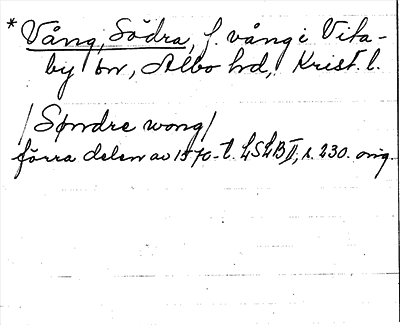 * Vång, Södra, f. vång i Vita-
by sn, Albo hd, Krist. l.
/Søndre wong/
förra delen av 1570-t. LSLB II, s. 230. orig.